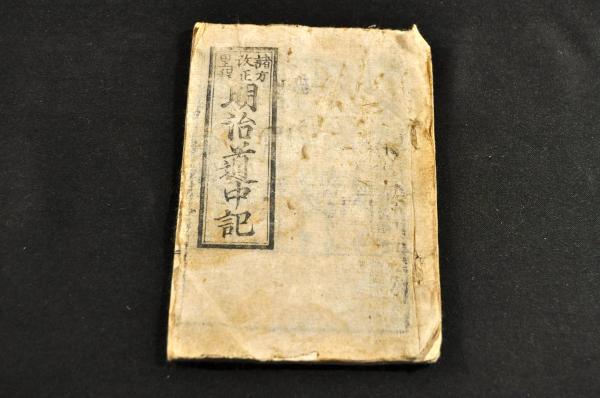 諸方
改正
里程
明治道中記